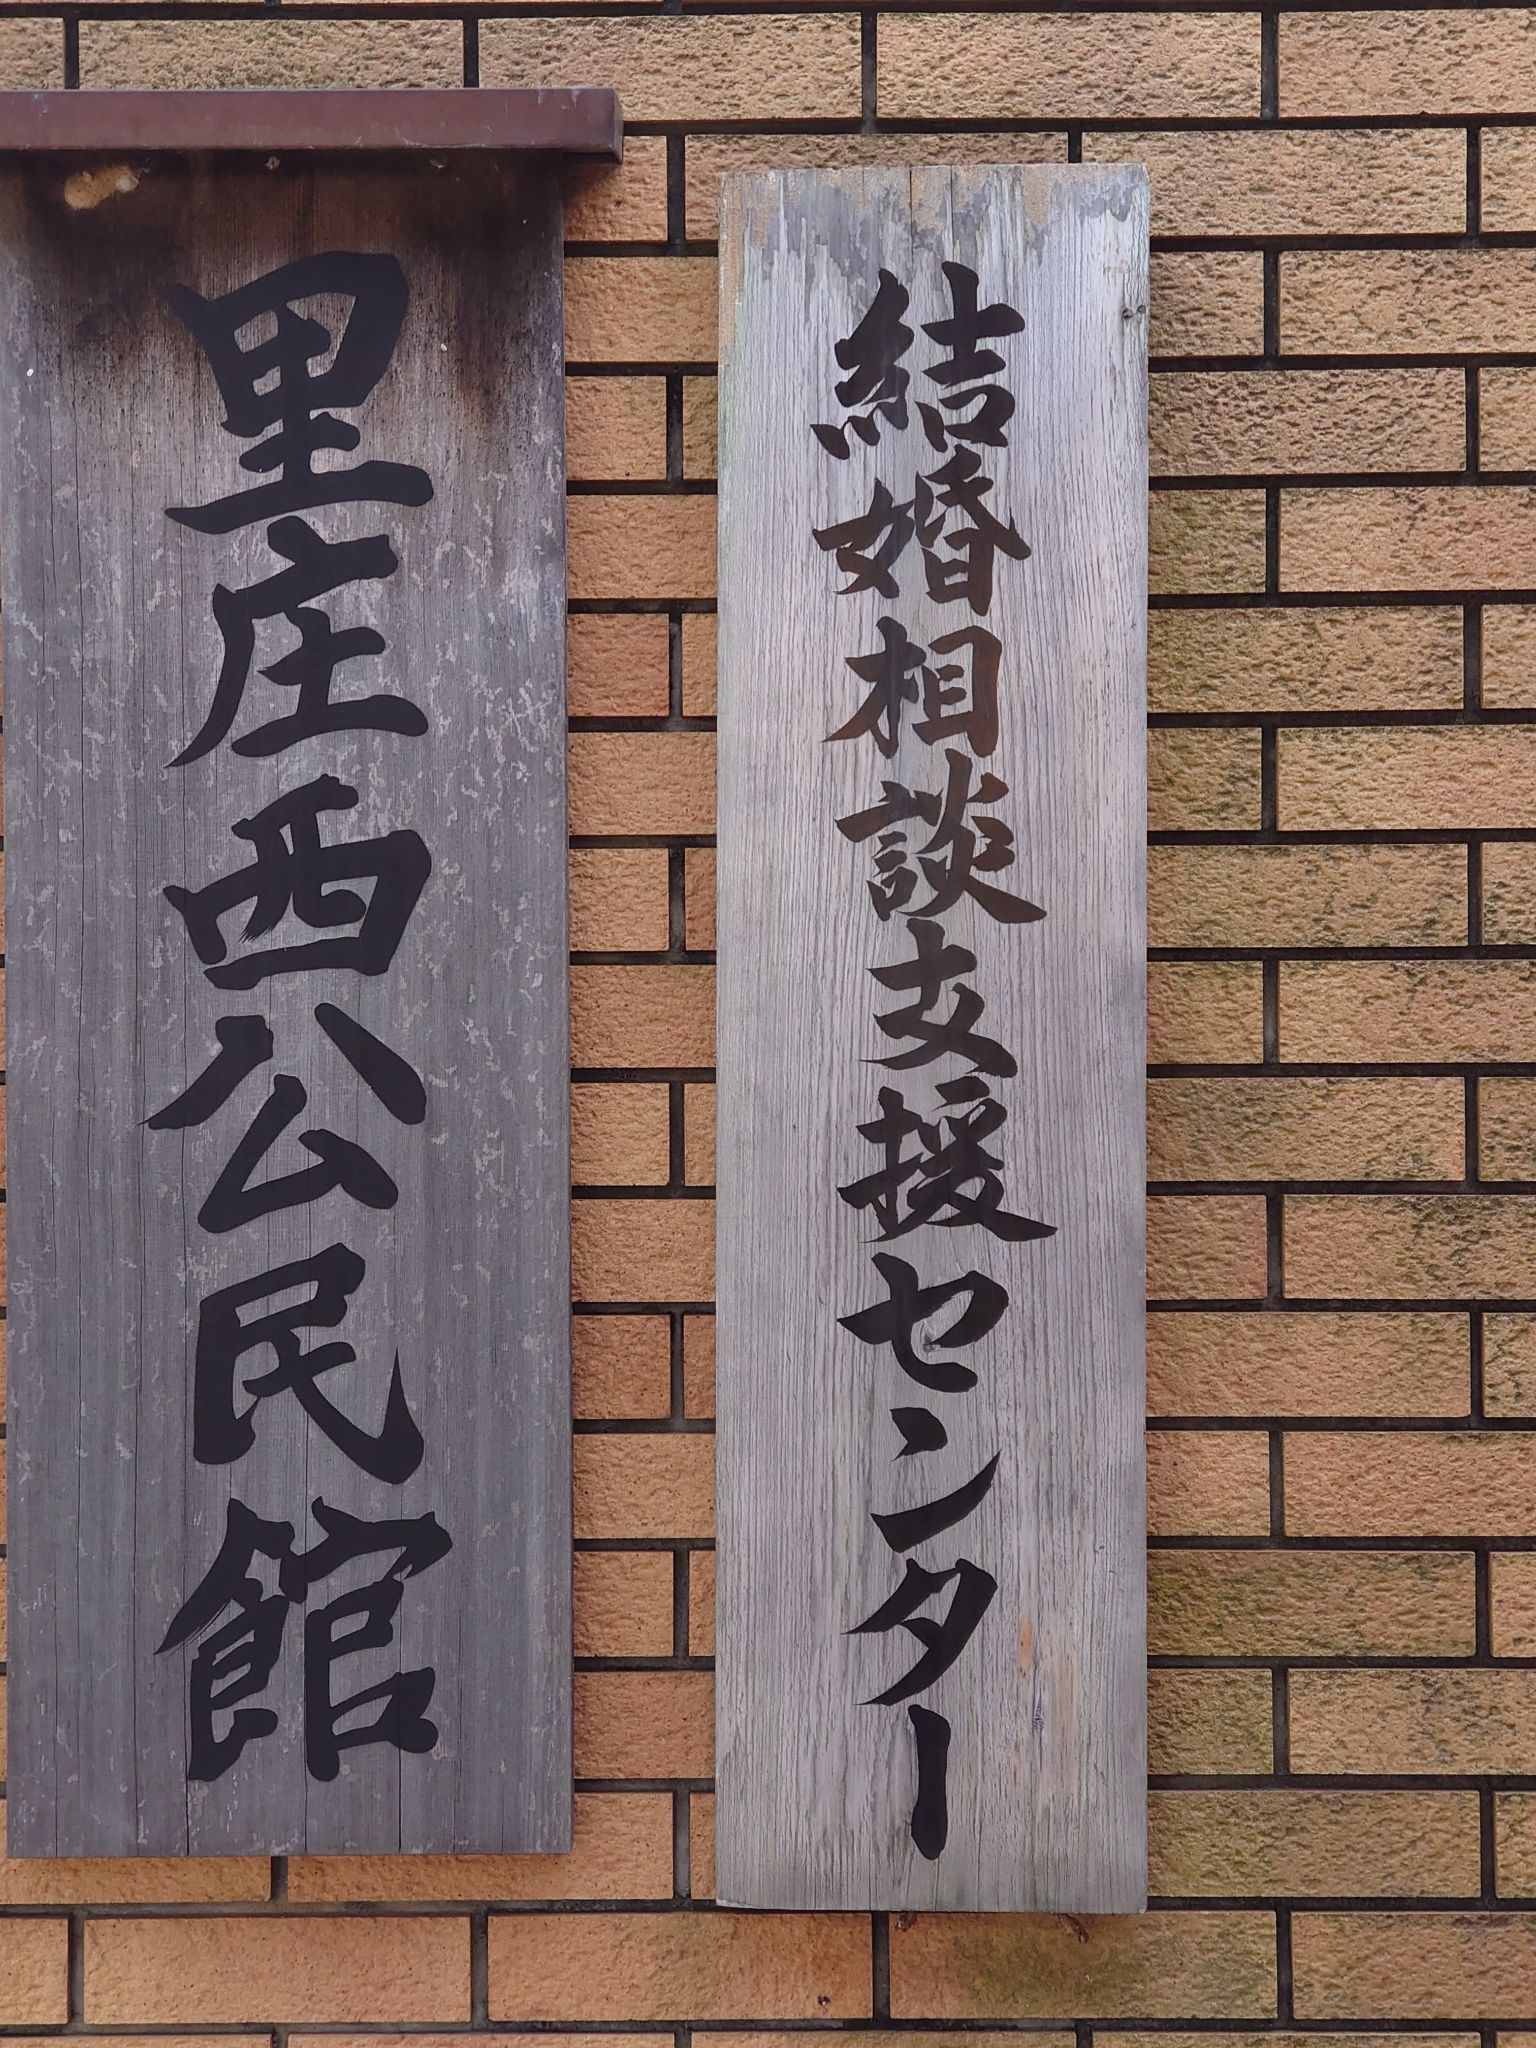 結婚相談支援センター
里庄西公民館